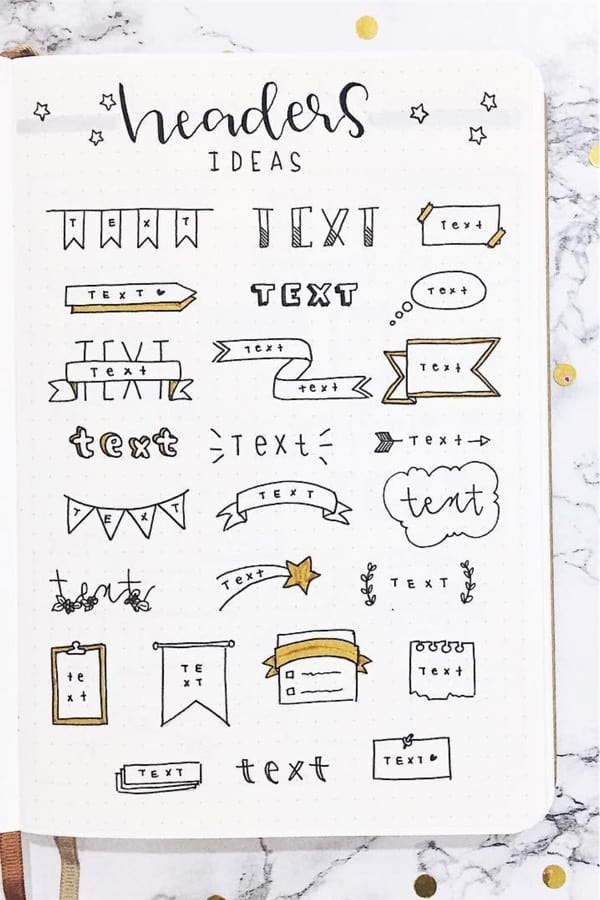 headers
IDEAS
TEXT
TEXT
Text
TEXT ♥
TEXT
Text
TEXT
Text
Text
text
Text
text
Text
Text
TEXT
TEXT
text
text
Text
TEXT
te
xt
TE
XT
Text
TEXT
text
TEXT ♥